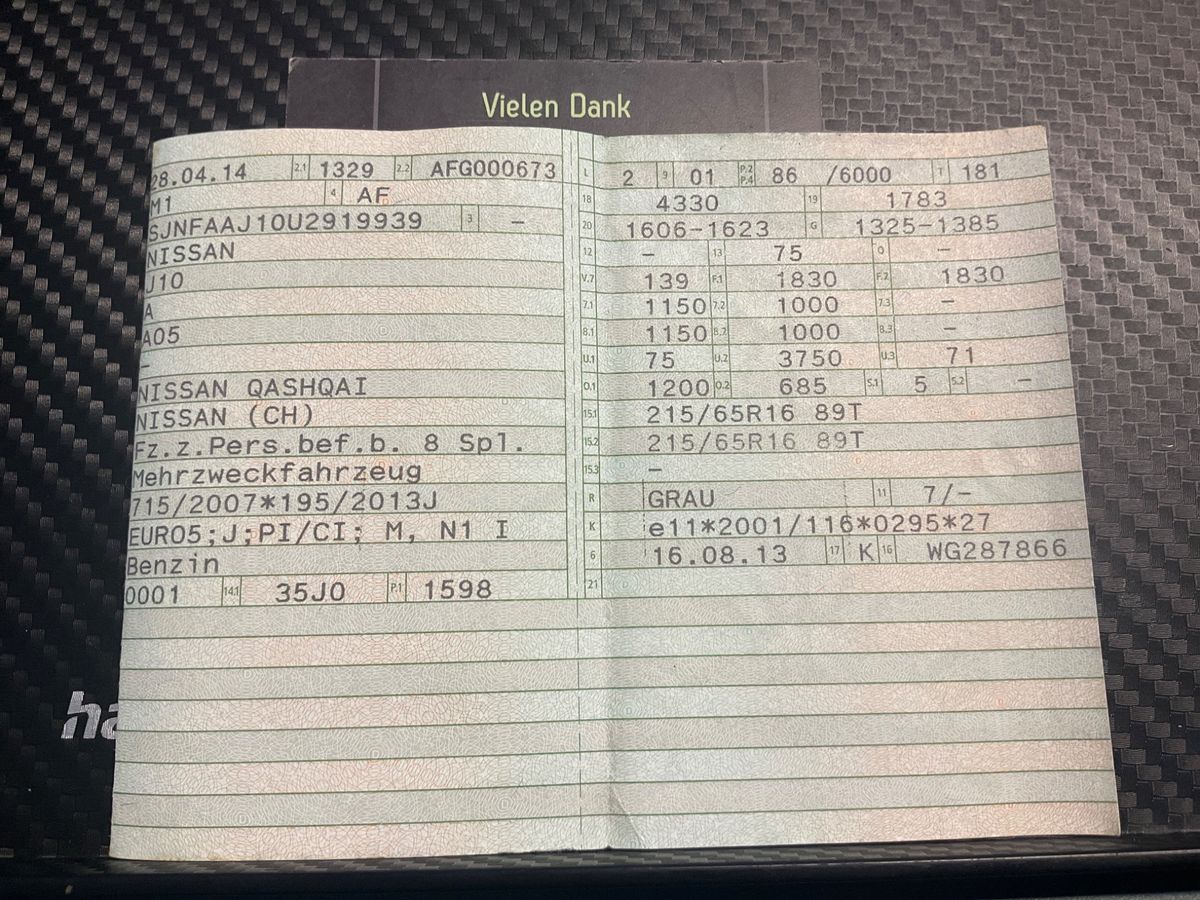 Vielen Dank
28.04.14 2.1 1329 2.2 AFG000673
M1 4 AF
SJNFAAJ10U2919939 3 –
NISSAN
J10
A
A05
–
NISSAN QASHQAI
NISSAN (CH)
Fz.z.Pers.bef.b. 8 Spl.
Mehrzweckfahrzeug
715/2007*195/2013J
EURO5;J;PI/CI; M, N1 I
Benzin
0001 14.1 35J0 P.1 1598
L 2 9 01 P.2 P.4 86 /6000 T 181
18 4330 19 1783
20 1606-1623 G 1325-1385
12 – 13 75 Q –
V.7 139 F.1 1830 F.2 1830
7.1 1150 7.2 1000 7.3 –
8.1 1150 8.2 1000 8.3 –
U.1 75 U.2 3750 U.3 71
O.1 1200 O.2 685 S.1 5 S.2 –
15.1 215/65R16 89T
15.2 215/65R16 89T
15.3 –
R GRAU 11 7/-
K e11*2001/116*0295*27
6 16.08.13 17 K 16 WG287866
21
ha